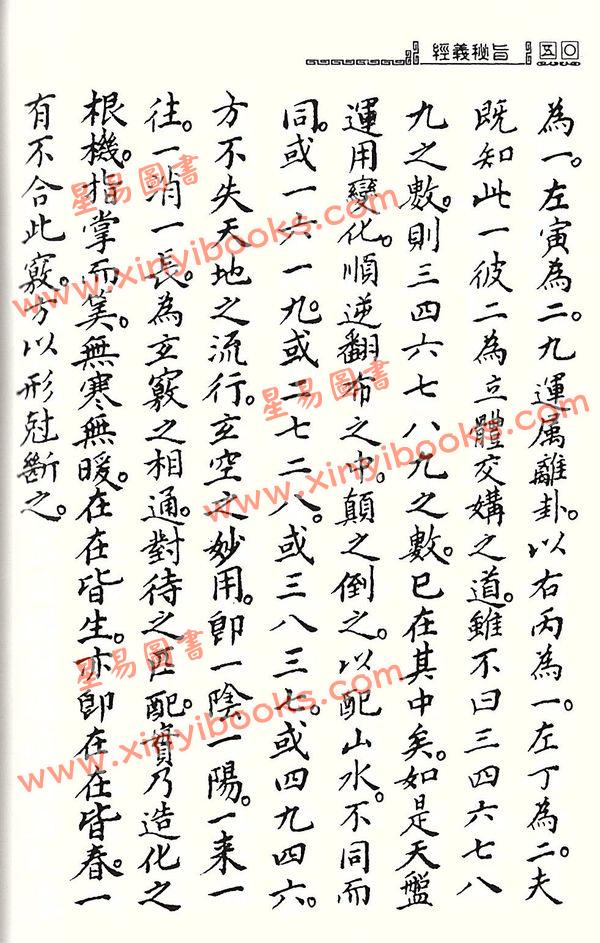 經義秘旨 五〇
為一。左寅為二。九運屬離卦。以右丙為一。左丁為二。夫
既知此一彼二為立體交媾之道。雖不曰三四六七八
九之數。則三四六七八九之數。已在其中矣。如是天盤
運用變化。順逆翻布之中。顛之倒之。以配山水。不同而
同。或一六一九。或二七二八。或三八三七。或四九四六。
方不失天地之流行。玄空之妙用。即一陰一陽。一来一
往。一消一長。為玄竅之相通。對待之匹配。實乃造化之
根機。指掌而筭。無寒無暖。在在皆生。亦即在在皆春。一
有不合此竅。方以形尅斷之。
星易圖書
www.xinyibooks.com
星易圖書
www.xinyibooks.com
星易圖書
www.xinyibooks.com